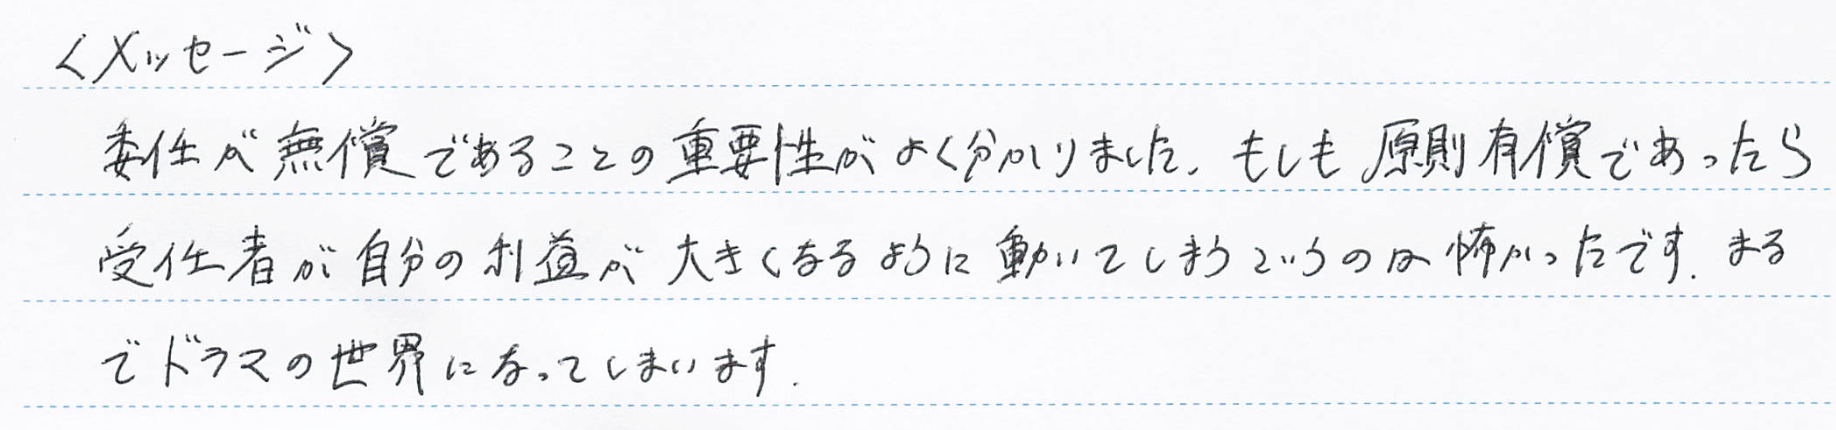 <メッセージ>
委任が無償であることの重要性がよく分かりました. もしも原則有償であったら
受任者が自分の利益が大きくなるように動いてしまうというのは怖かったです. まる
でドラマの世界になってしまいます.